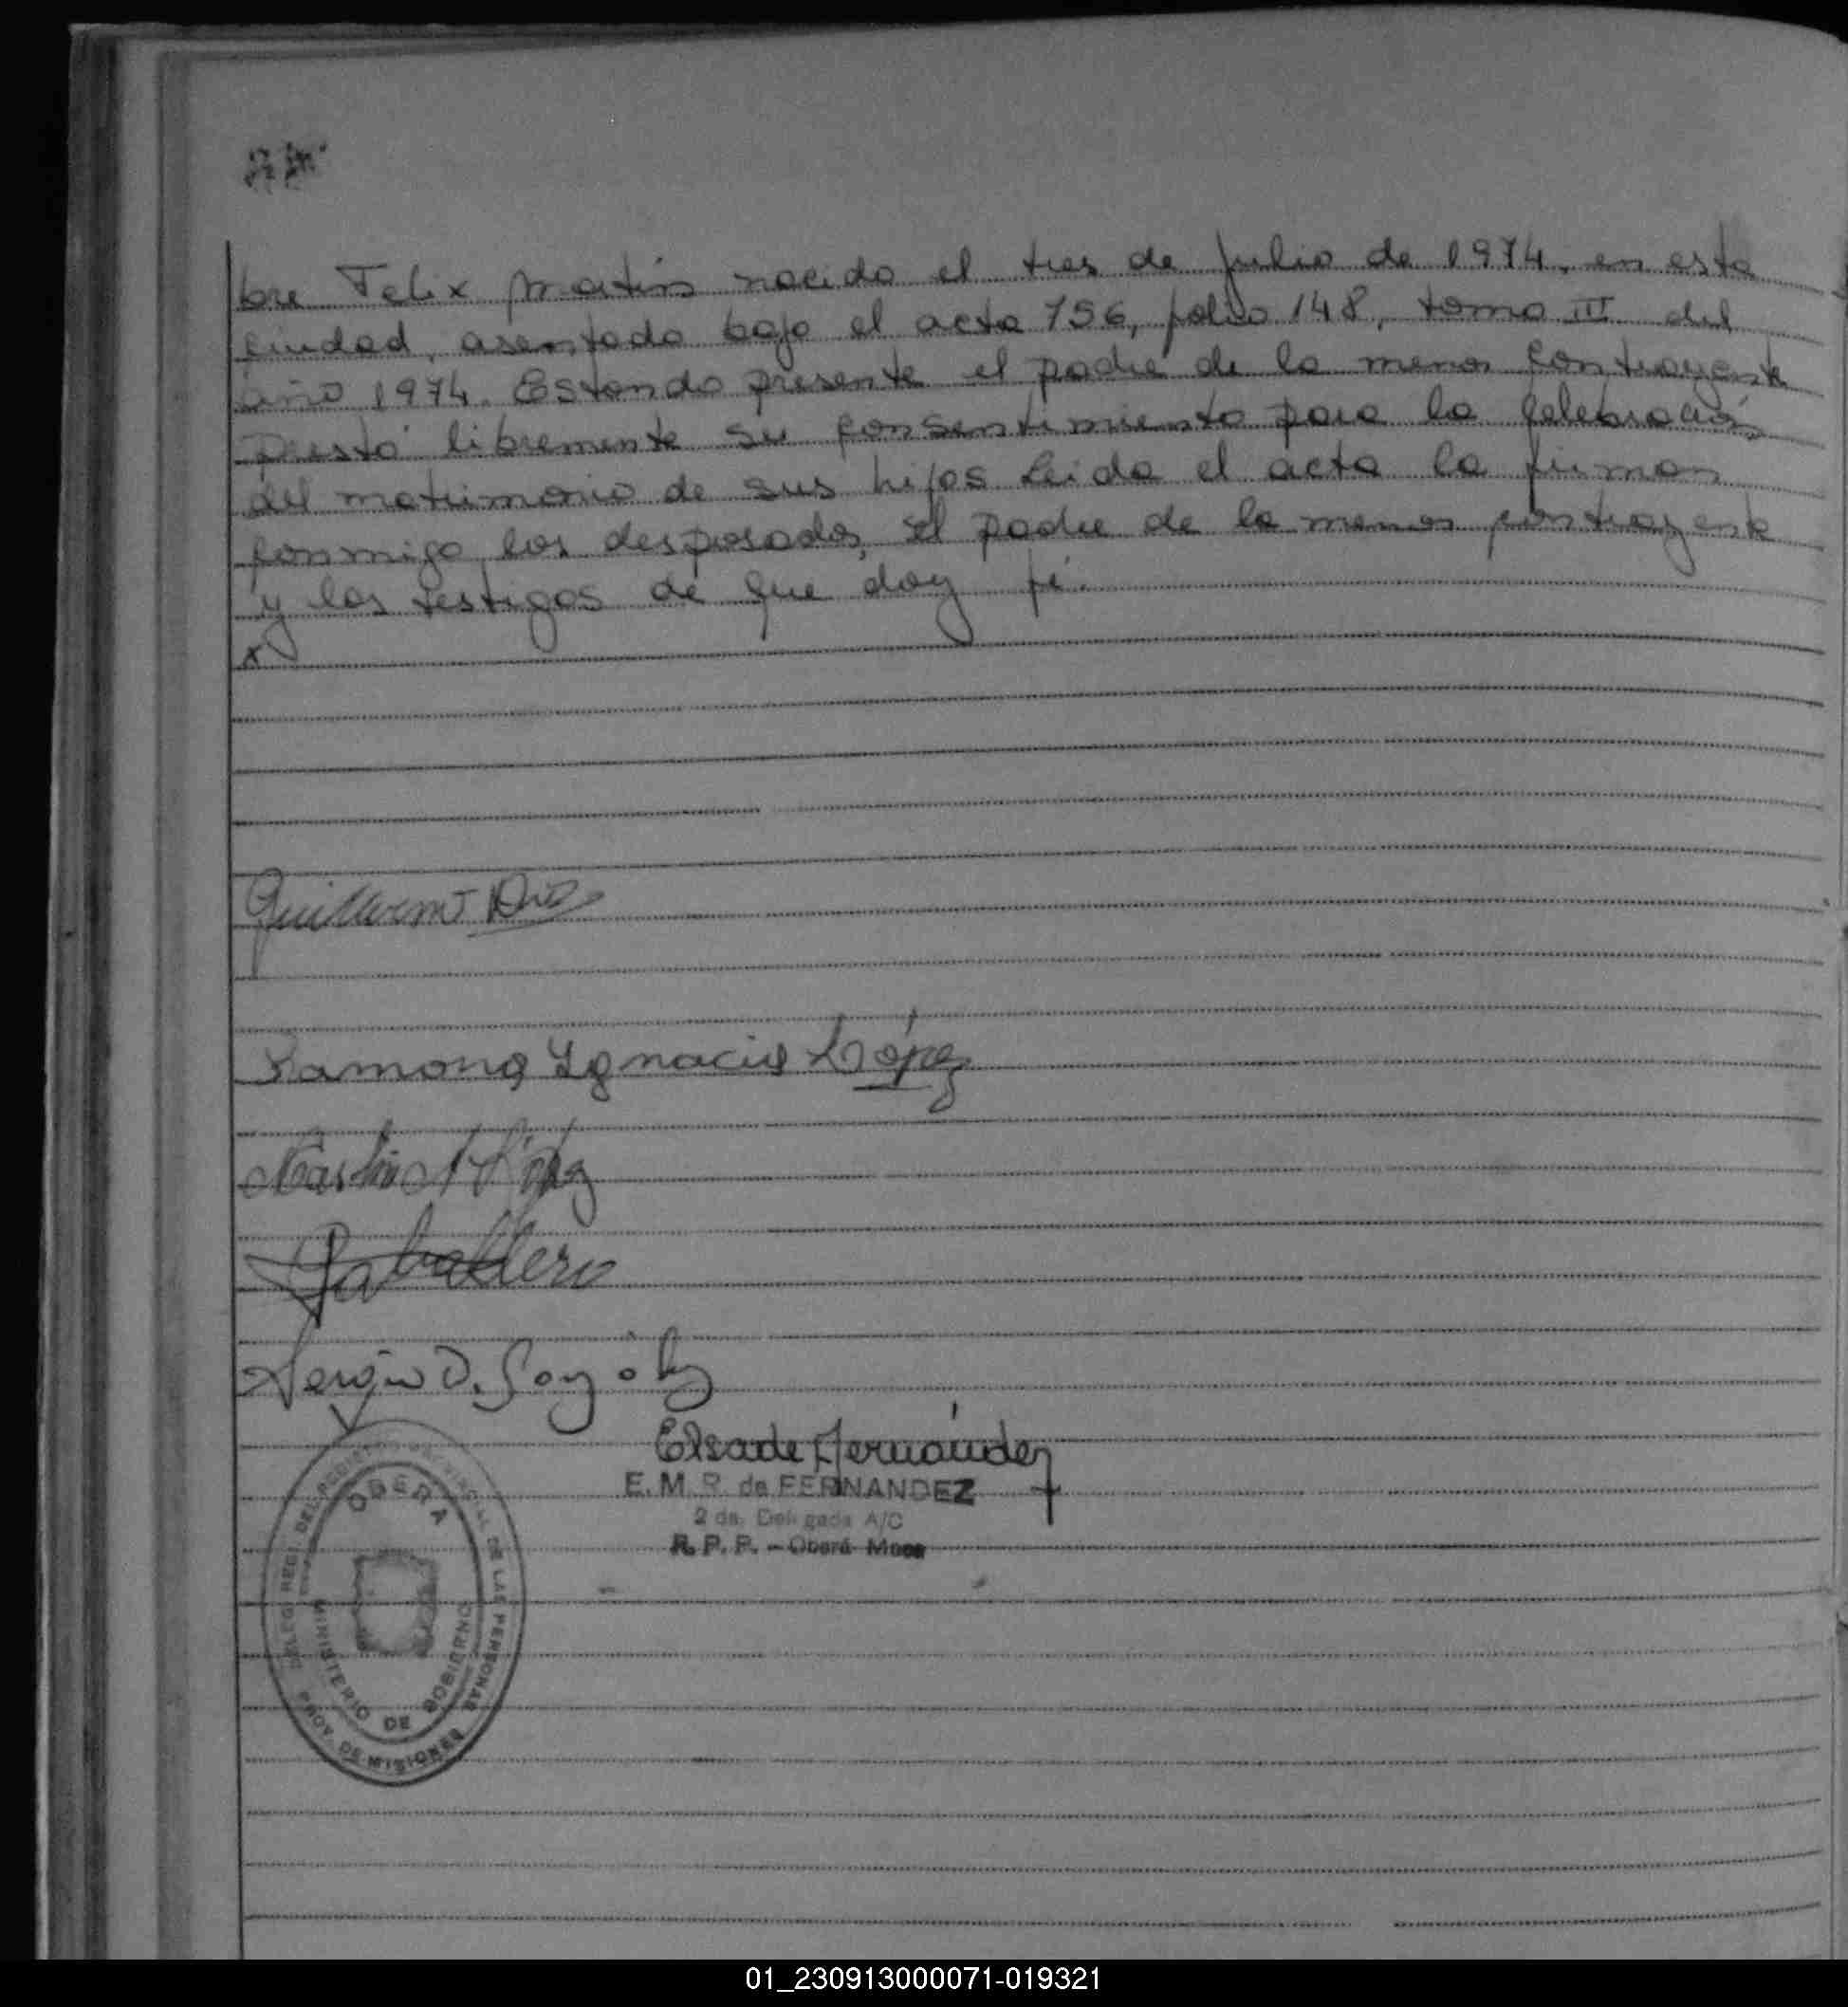 bre Felix Martin nacido el tres de Julio de 1974, en esta
ciudad, asentado bajo el acta 756, folio 148, tomo III del
año 1974. Estando presente el padre de la menor contrayente
prestó libremente su consentimiento para la celebración
del matrimonio de sus hijos leida el acta la firman
conmigo los desposados, el padre de la menor contrayente
y los testigos de que doy fé.
x
Guillermo
Ramona Ignacia López
López
Caballero
Sergio D.
Elsa de Fernández
E. M. R. de FERNANDEZ
2 da. Delegada A/C
R. P. P. - Oberá Mnes
DELEG. REG. DEL REGISTRO PROVINCIAL DE LAS PERSONAS
OBERA
MINISTERIO DE GOBIERNO
PROV. DE MISIONES
01_230913000071-019321